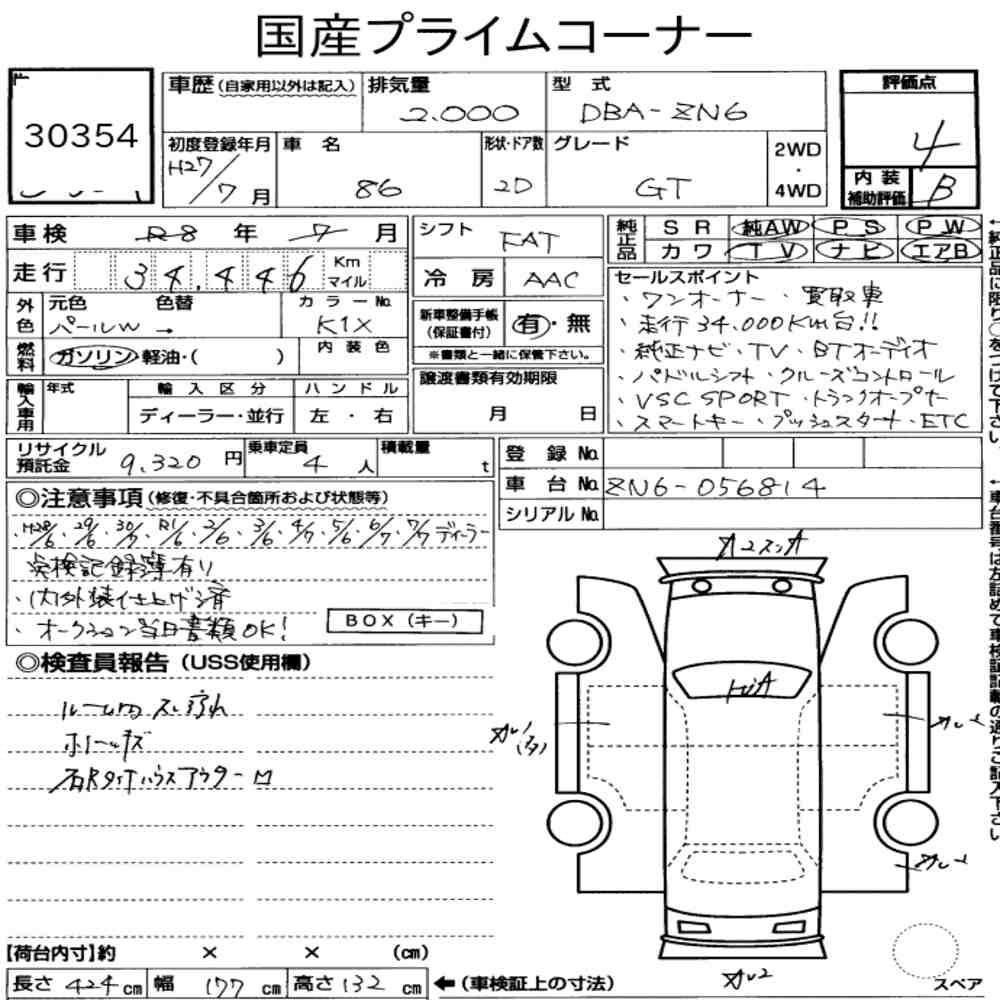 国産プライムコーナー
30354
車歴(自家用以外は記入)
排気量
2.000
型 式
DBA-ZN6
評価点
4
初度登録年月
H27/7月
車 名
86
形状・ドア数
2D
グレード
GT
2WD
・
4WD
内 装
補助評価
B
車検 R8 年 7 月
走行 34,446 Km マイル
外色
元色 色替
パールW →
カラーNo.
K1X
燃料
ガソリン・軽油・( )
内 装 色
輸入車用
年式
輸 入 区 分
ディーラー・並行
ハ ン ド ル
左 ・ 右
シフト
FAT
冷 房
AAC
新車整備手帳
(保証書付)
有・無
※書類と一緒に保管下さい。
譲渡書類有効期限
月 日
純正品
S R 純AW P S P W
カ ワ T V ナ ビ エアB
セールスポイント
・ワンオーナー ・買取車
・走行34.000Km台!!
・純正ナビ・TV・BTオーディオ
・パドルシフト・クルーズコントロール
・VSC SPORT・トランクオープナー
・スマートキー・プッシュスタート・ETC
リサイクル
預託金
9,320 円
乗車定員
4 人
積載量
t
登 録 No.
車 台 No. ZN6-056814
シリアル No.
◎注意事項(修復・不具合箇所および状態等)
・H28/6・29/6・30/7・R1/6・2/6・3/6・4/7・5/6・6/7・7/7ディーラー
点検記録簿有り
・内外装仕上げ済
・オークション当日書類OK!
BOX(キー)
◎検査員報告(USS使用欄)
ルーム内スレ汚れ
【荷台内寸】約 × × (cm)
長さ 424 cm 幅 177 cm 高さ 132 cm
←(車検証上の寸法)
スペア
←純正品に限り○をつけて下さい。
←車台番号は左詰めで車検証記載の通りご記入下さい。